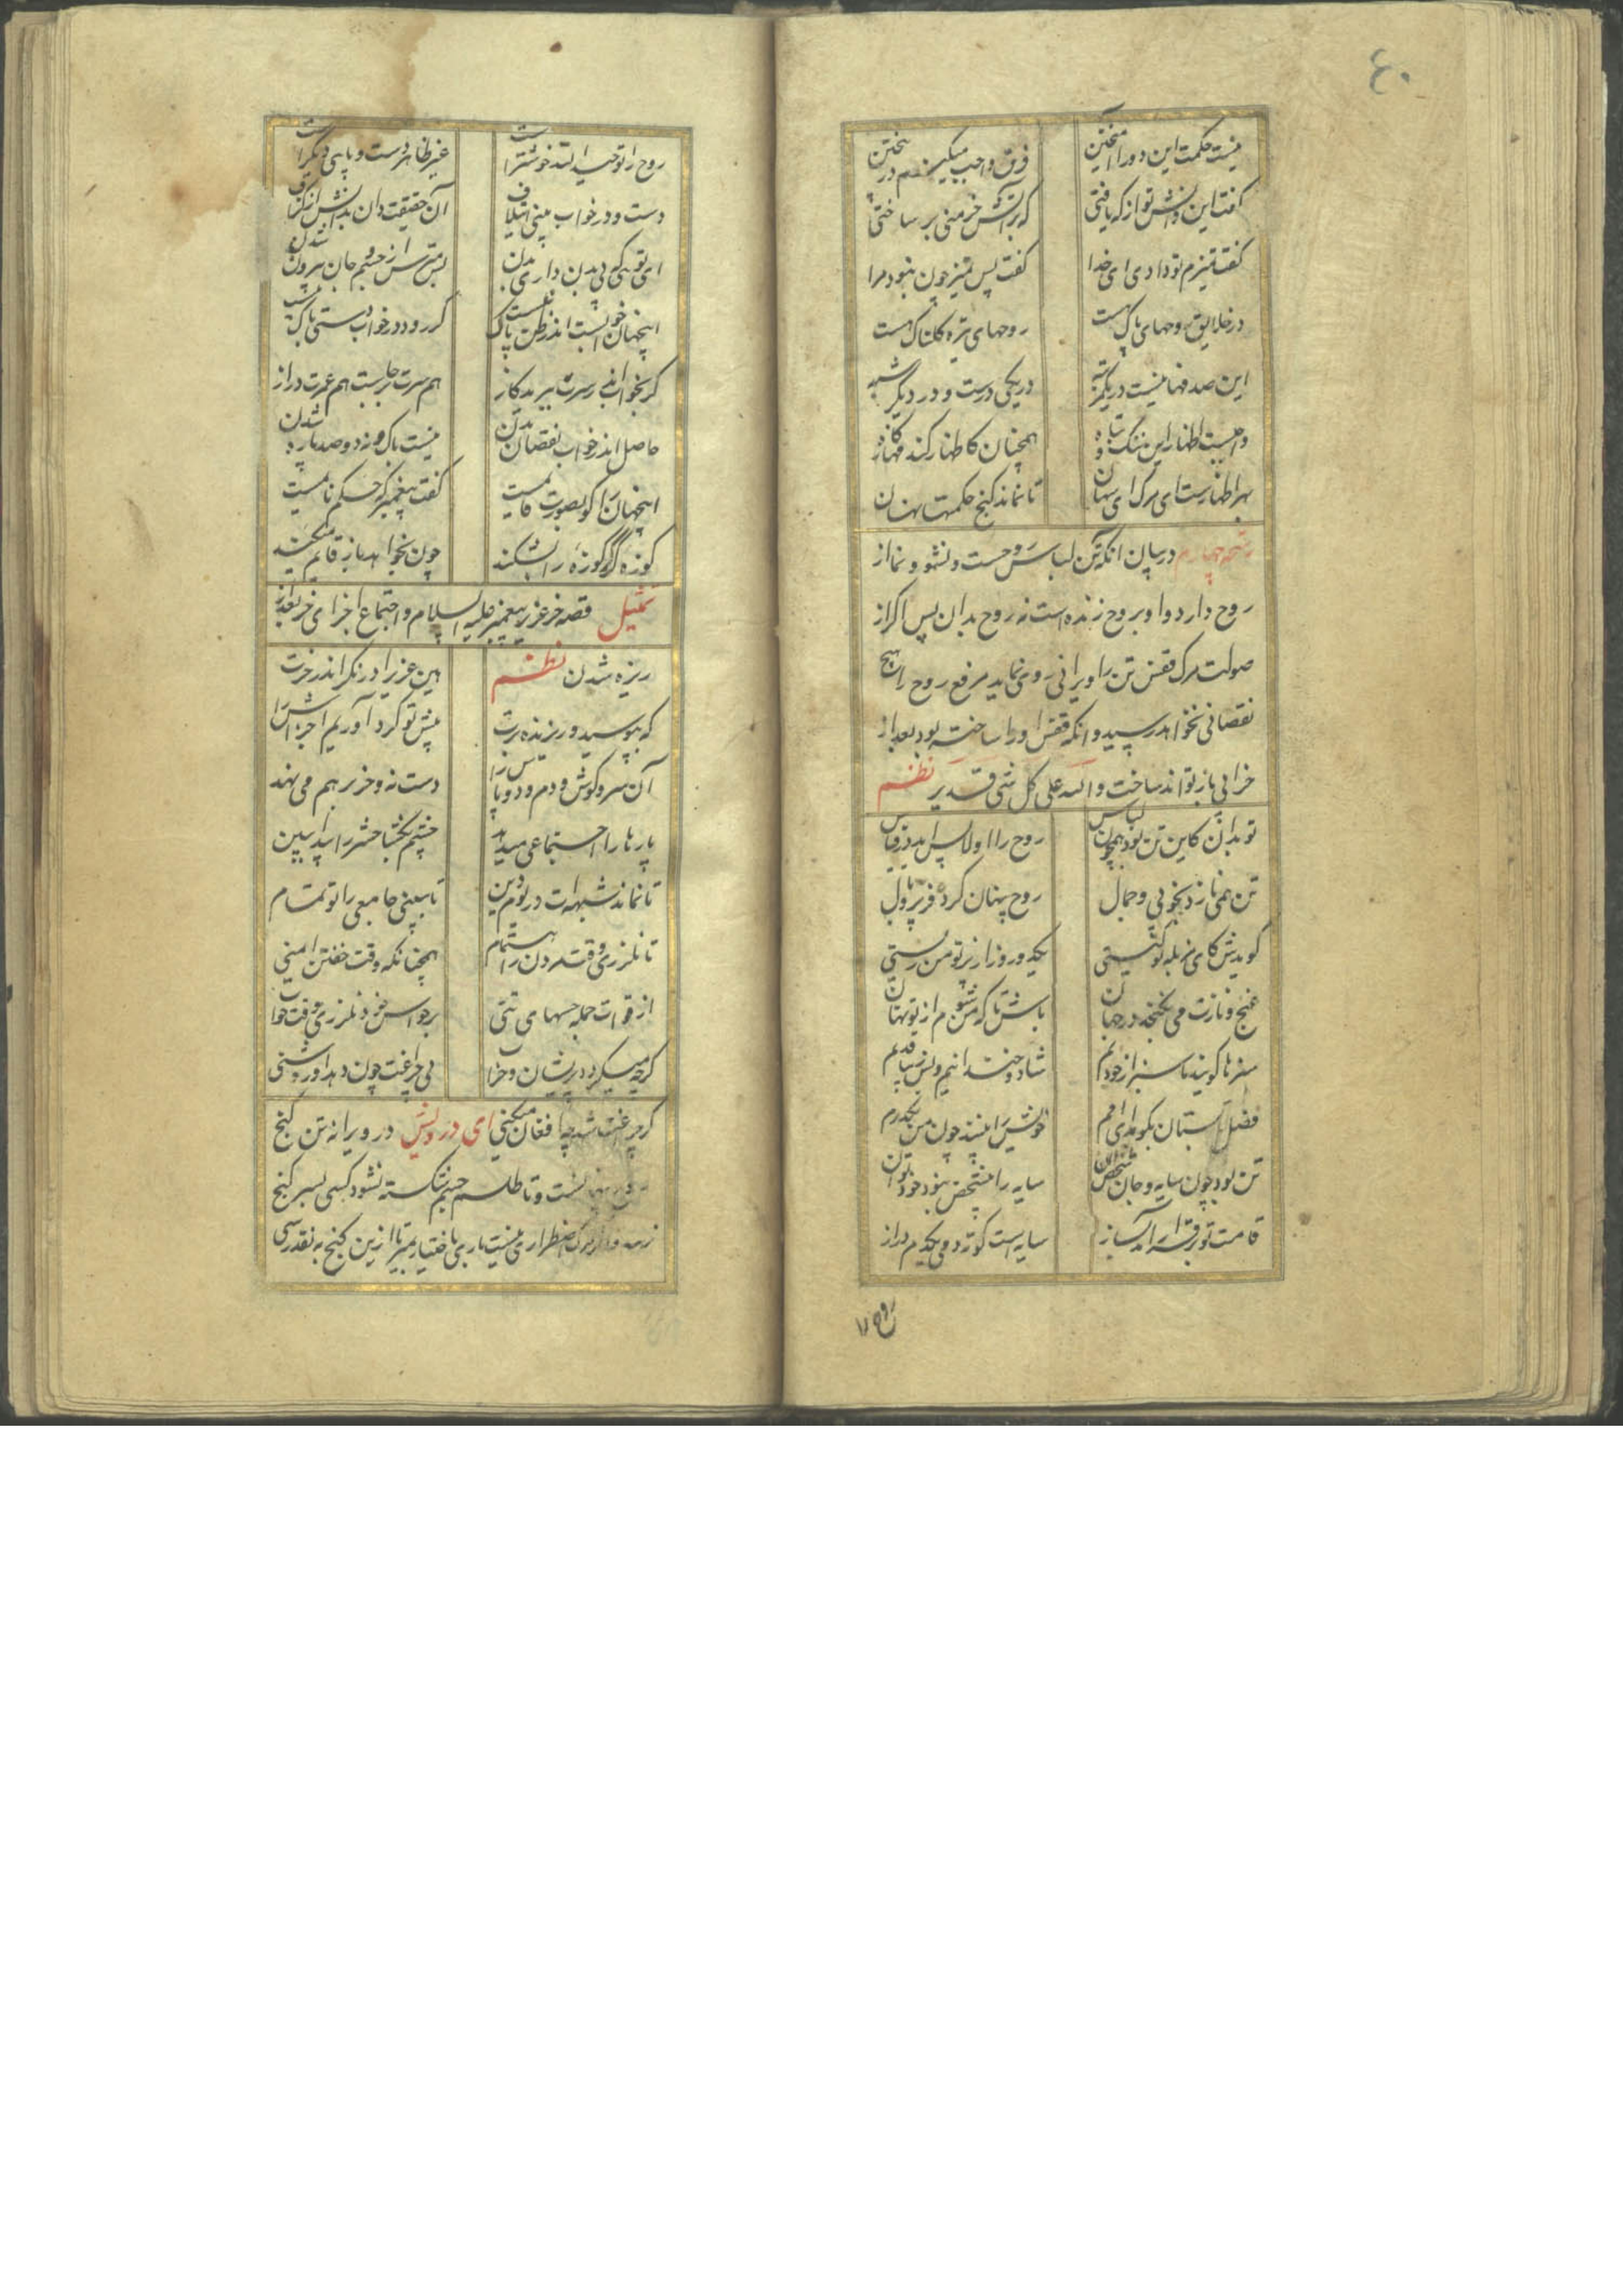 ۴۰
نیست حکمت این دو را آمیختن فرق واجب میکند در بیختن
گفت این دانش تو از که یافتی که بدانش خرمنی بر ساختی
گفت تمیزم تو دادی ای خدا گفت پس تمیز چون نبود مرا
در خلایق روحهای پاک هست روحهای تیره گلناک هست
این صدفها نیست در یکمرتبه در یکی درست و در دیگر شبه
واجبست اظهار این نیک و تباه همچنان کاظهار گندمها ز کاه
بهر اظهارست ای مرگ ای تا نماند گنج حکمتها نهان
رشحه چهارم در بیان آنکه تن لباس روحست و نشو و نما از
روح دارد و او بروح زنده است نه روح بدان پس اگر از
صولت مرگ قفس تن را ویرانی روی نماید مرغ روح را هیچ
نقصانی نخواهد رسید و آنکه قفس او را ساخته بود بعد از
خرابی باز تواند ساخت والله علی کل شی قدیر نظم
تو بدان کاین تن بود همچون لباس روح را اول
تن همی نازد بخوبی و جمال روح پنهان کرده فر و پر و بال
گویدش کای مزبله تو کیستی یکدو روز از پرتو من زیستی
غنج و نازت می نگنجد در جهان باش تا که من شوم از تو نهان
سبزها گویند ما سبز از خودیم شاد و خندانیم و بس زیبا قدیم
فصل تابستان بگوید ای امم خویش را بینید چون من بگذرم
تن بود چون سایه و جان شخص آن سایه را بی شخص نبود خود توان
قامت تو برقرار آمد بساز سایه است کوته دمی یکدم دراز
روح را
روح را توحید الله خوشتر است غیر ظاهر دست و پای دیگر است
دست و در خواب بینی ایتلاف آن حقیقت دان بدانش از گزاف
ای تویی که بی بدن داری بدن پس مترس از جسم و جان بیرون شدن
اینجهان خوابست اندر ظن بایست گر رود در خواب دستی باک نیست
گر بخواب اندر سرت ببرید گاز هم سرت برجاست هم عمرت دراز
حاصل اندر خواب نقصان بدن نیست باک و نه دو صد پاره شدن
اینجهان را کو بصورت قایمست گفت پیغمبر که حلم نایمست
کوزه گر گر کوزه را بشکند چون بخواهد باز قایم میکند
تمثیل قصه خر عزیر پیغمبر علیه السلام و اجتماع اجزای خر بعد از
ریزه شدن نظم هین عزیرا در نگر اندر خرت
که بپوسید و ریزیده برت پیش تو گرد آوریم اجزاش را
آن سر و گوش و دم و دو پاش را دست نه و خر بر هم می نهد
پارها را اجتماعی میدهد چشم بگشا حشر را پیدا ببین
تا نماند شبهه ات در یوم دین تا ببینی جامعی را تو تمام
تا نلرزی وقت مردن را اهتمام همچنانکه وقت خفتن ایمنی
از فوات جمله حسهای تنی بر حواس خود نلرزی وقت خواب
گرچه میگردد پریشان و خراب بی چراغت چون دهد او روشنی
گر چراغت شد چه افغان میکنی ای درویش در ویرانه تن گنج
روح پنهانست و تا طلسم جسم شکسته نشود کسی بسر گنج
نرسد و از مرگ اضطراری نیست باری باختیار بمیر تا ازین گنج به نقد رسی